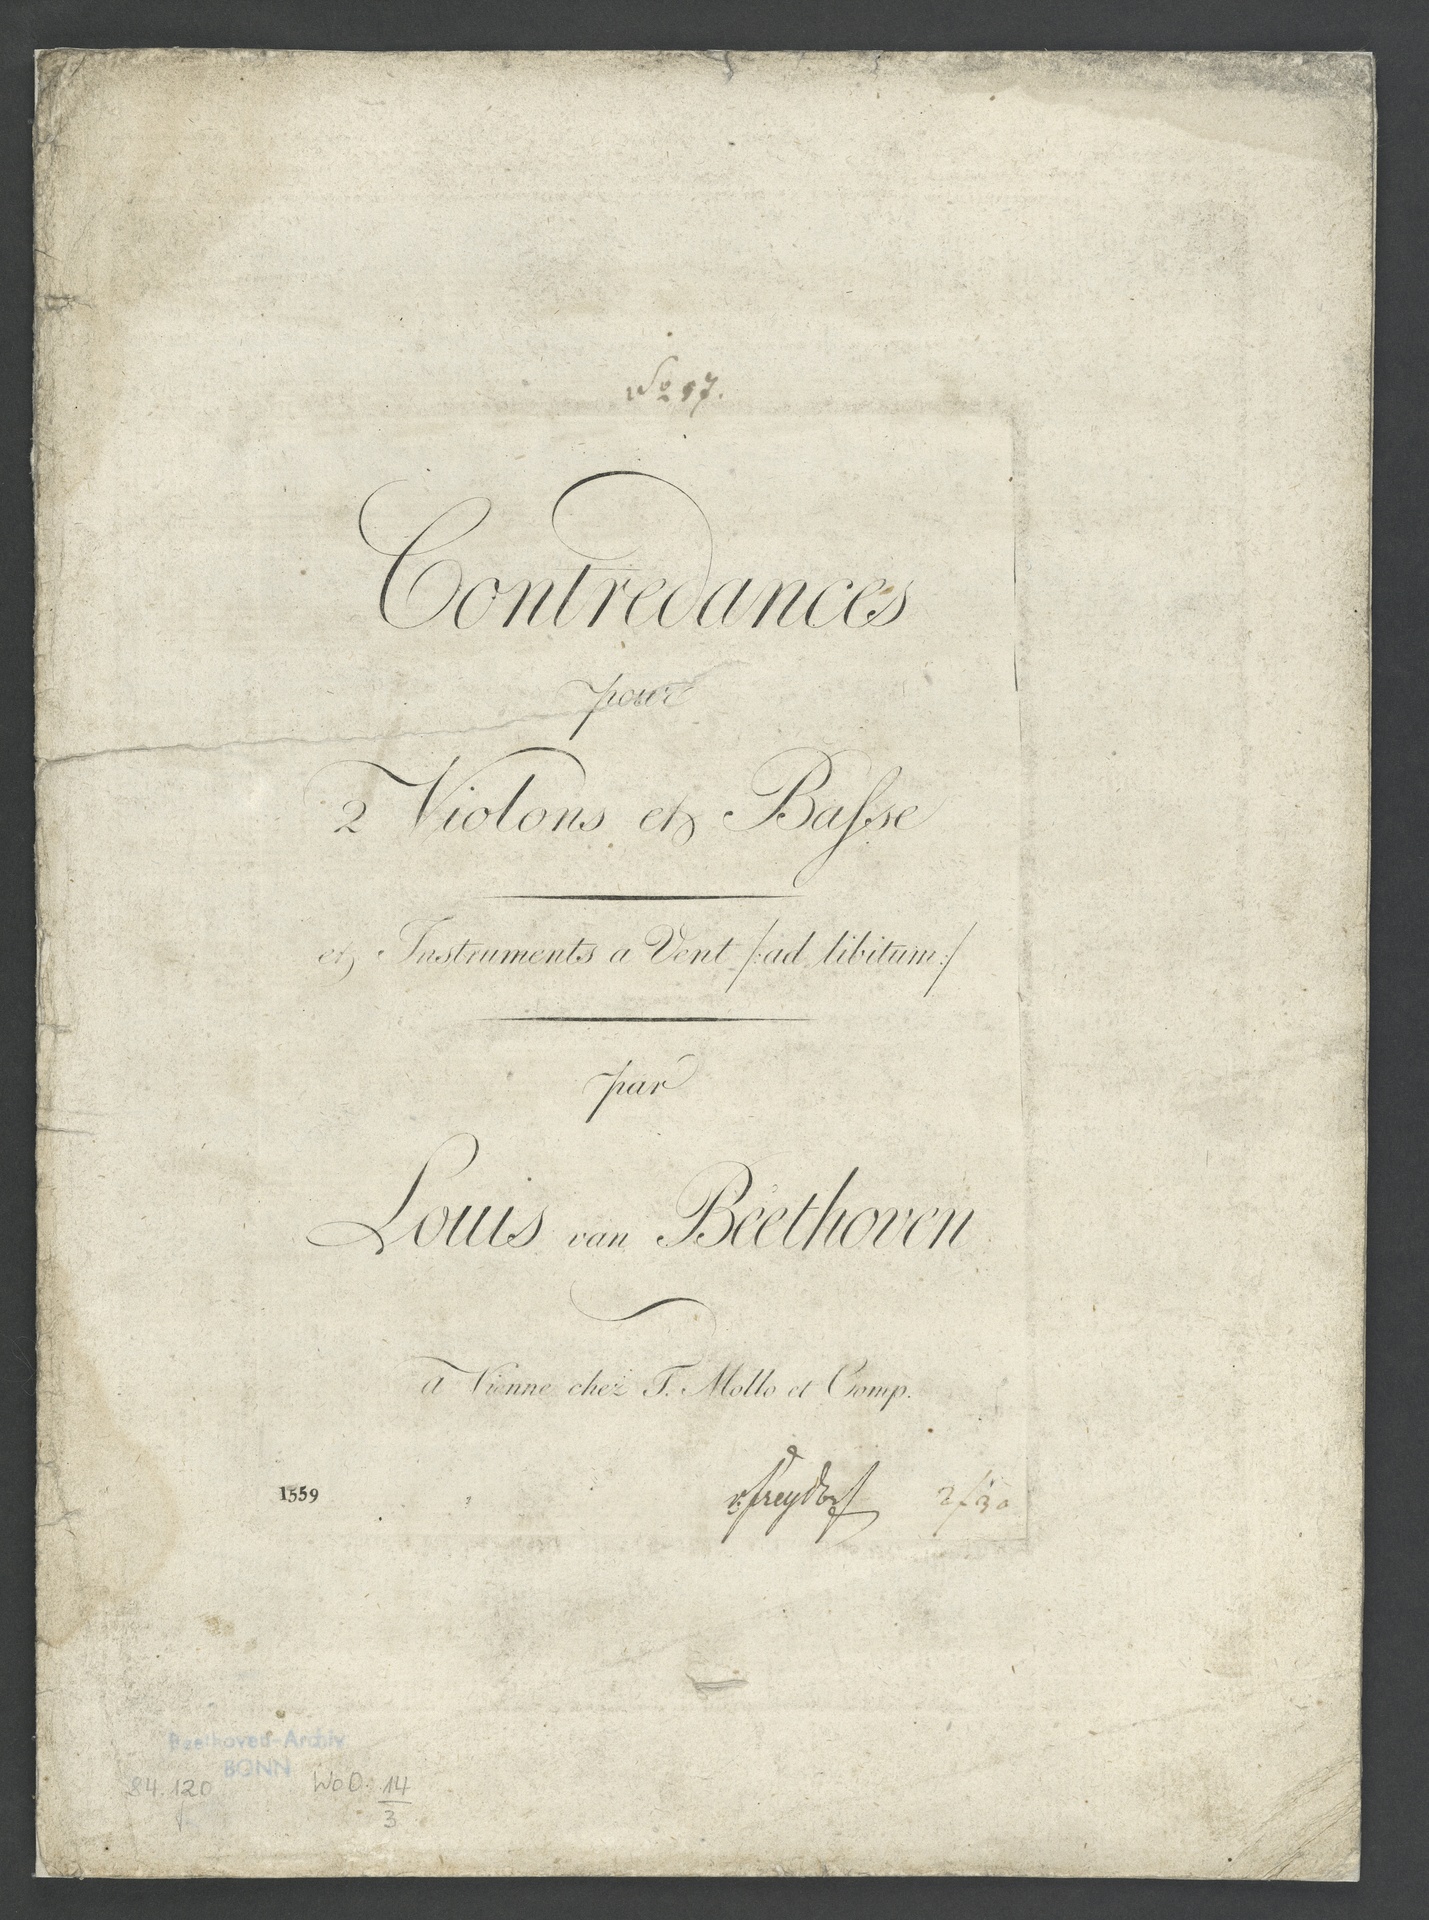 No 97.
Contredances
pour
2 Violons et Basse
et Instruments a Vent /: ad libitum :/
par
Louis van Beethoven
a Vienne chez T. Mollo et Comp.
1559 v. freydorf 2f 30
Beethoven-Archiv
BONN
84.120 WoO. 14
3